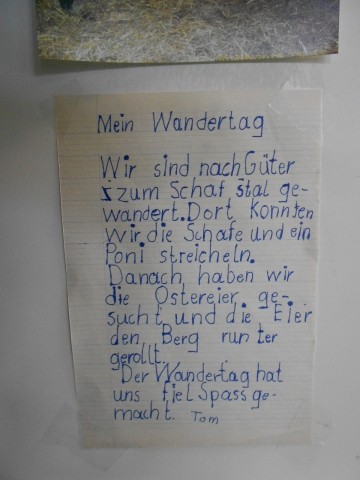 Mein Wandertag
Wir sind nach Güter
zum Schaf stal ge-
wandert. Dort Konnten
wir die Schafe und ein
Poni streicheln.
Danach haben wir
die Ostereier ge-
sucht und die Eier
den Berg run ter
gerollt.
Der Wandertag hat
uns fiel Spass ge-
macht. Tom